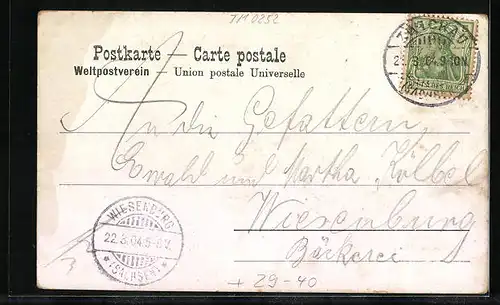 TM0252
Postkarte — Carte postale
Weltpostverein — Union postale Universelle
An die Gefattern,
Ewald und Martha Kölbel
Wiesenburg
Bäckerei
WIESENBURG
22.3.04.5-6N.
* (SACHSEN) *
+ 29-40